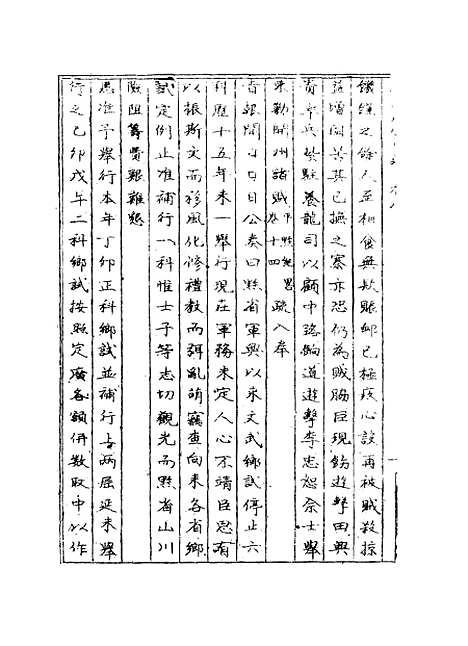 饑饉之餘人至相食無款賑卹已極疚心設再被賊殺掠
益增困苦其已撫之寨亦恐仍為賊脇臣現飭遊擊田興
貴率兵駐養龍司以顧中路餉道遊擊李忠恕奈士舉
來勦開州諸賊 平黔紀畧卷十四 疏入奉
旨報聞 日公奏曰黔省軍興以來文武鄉試停止六
科歷十五年未一舉行現在軍務未定人心不靖臣思有
以振斯文而移風化修禮教而弭亂萌竊查向來各省鄉
試定例止准補行一科惟士子等志切觀光而黔省山川
險阻籌費艱難懇
恩准予舉行本年丁卯正科鄉試並補行上兩屆延未舉
行之乙卯戊午二科鄉試按照定廣各額併數取中以作